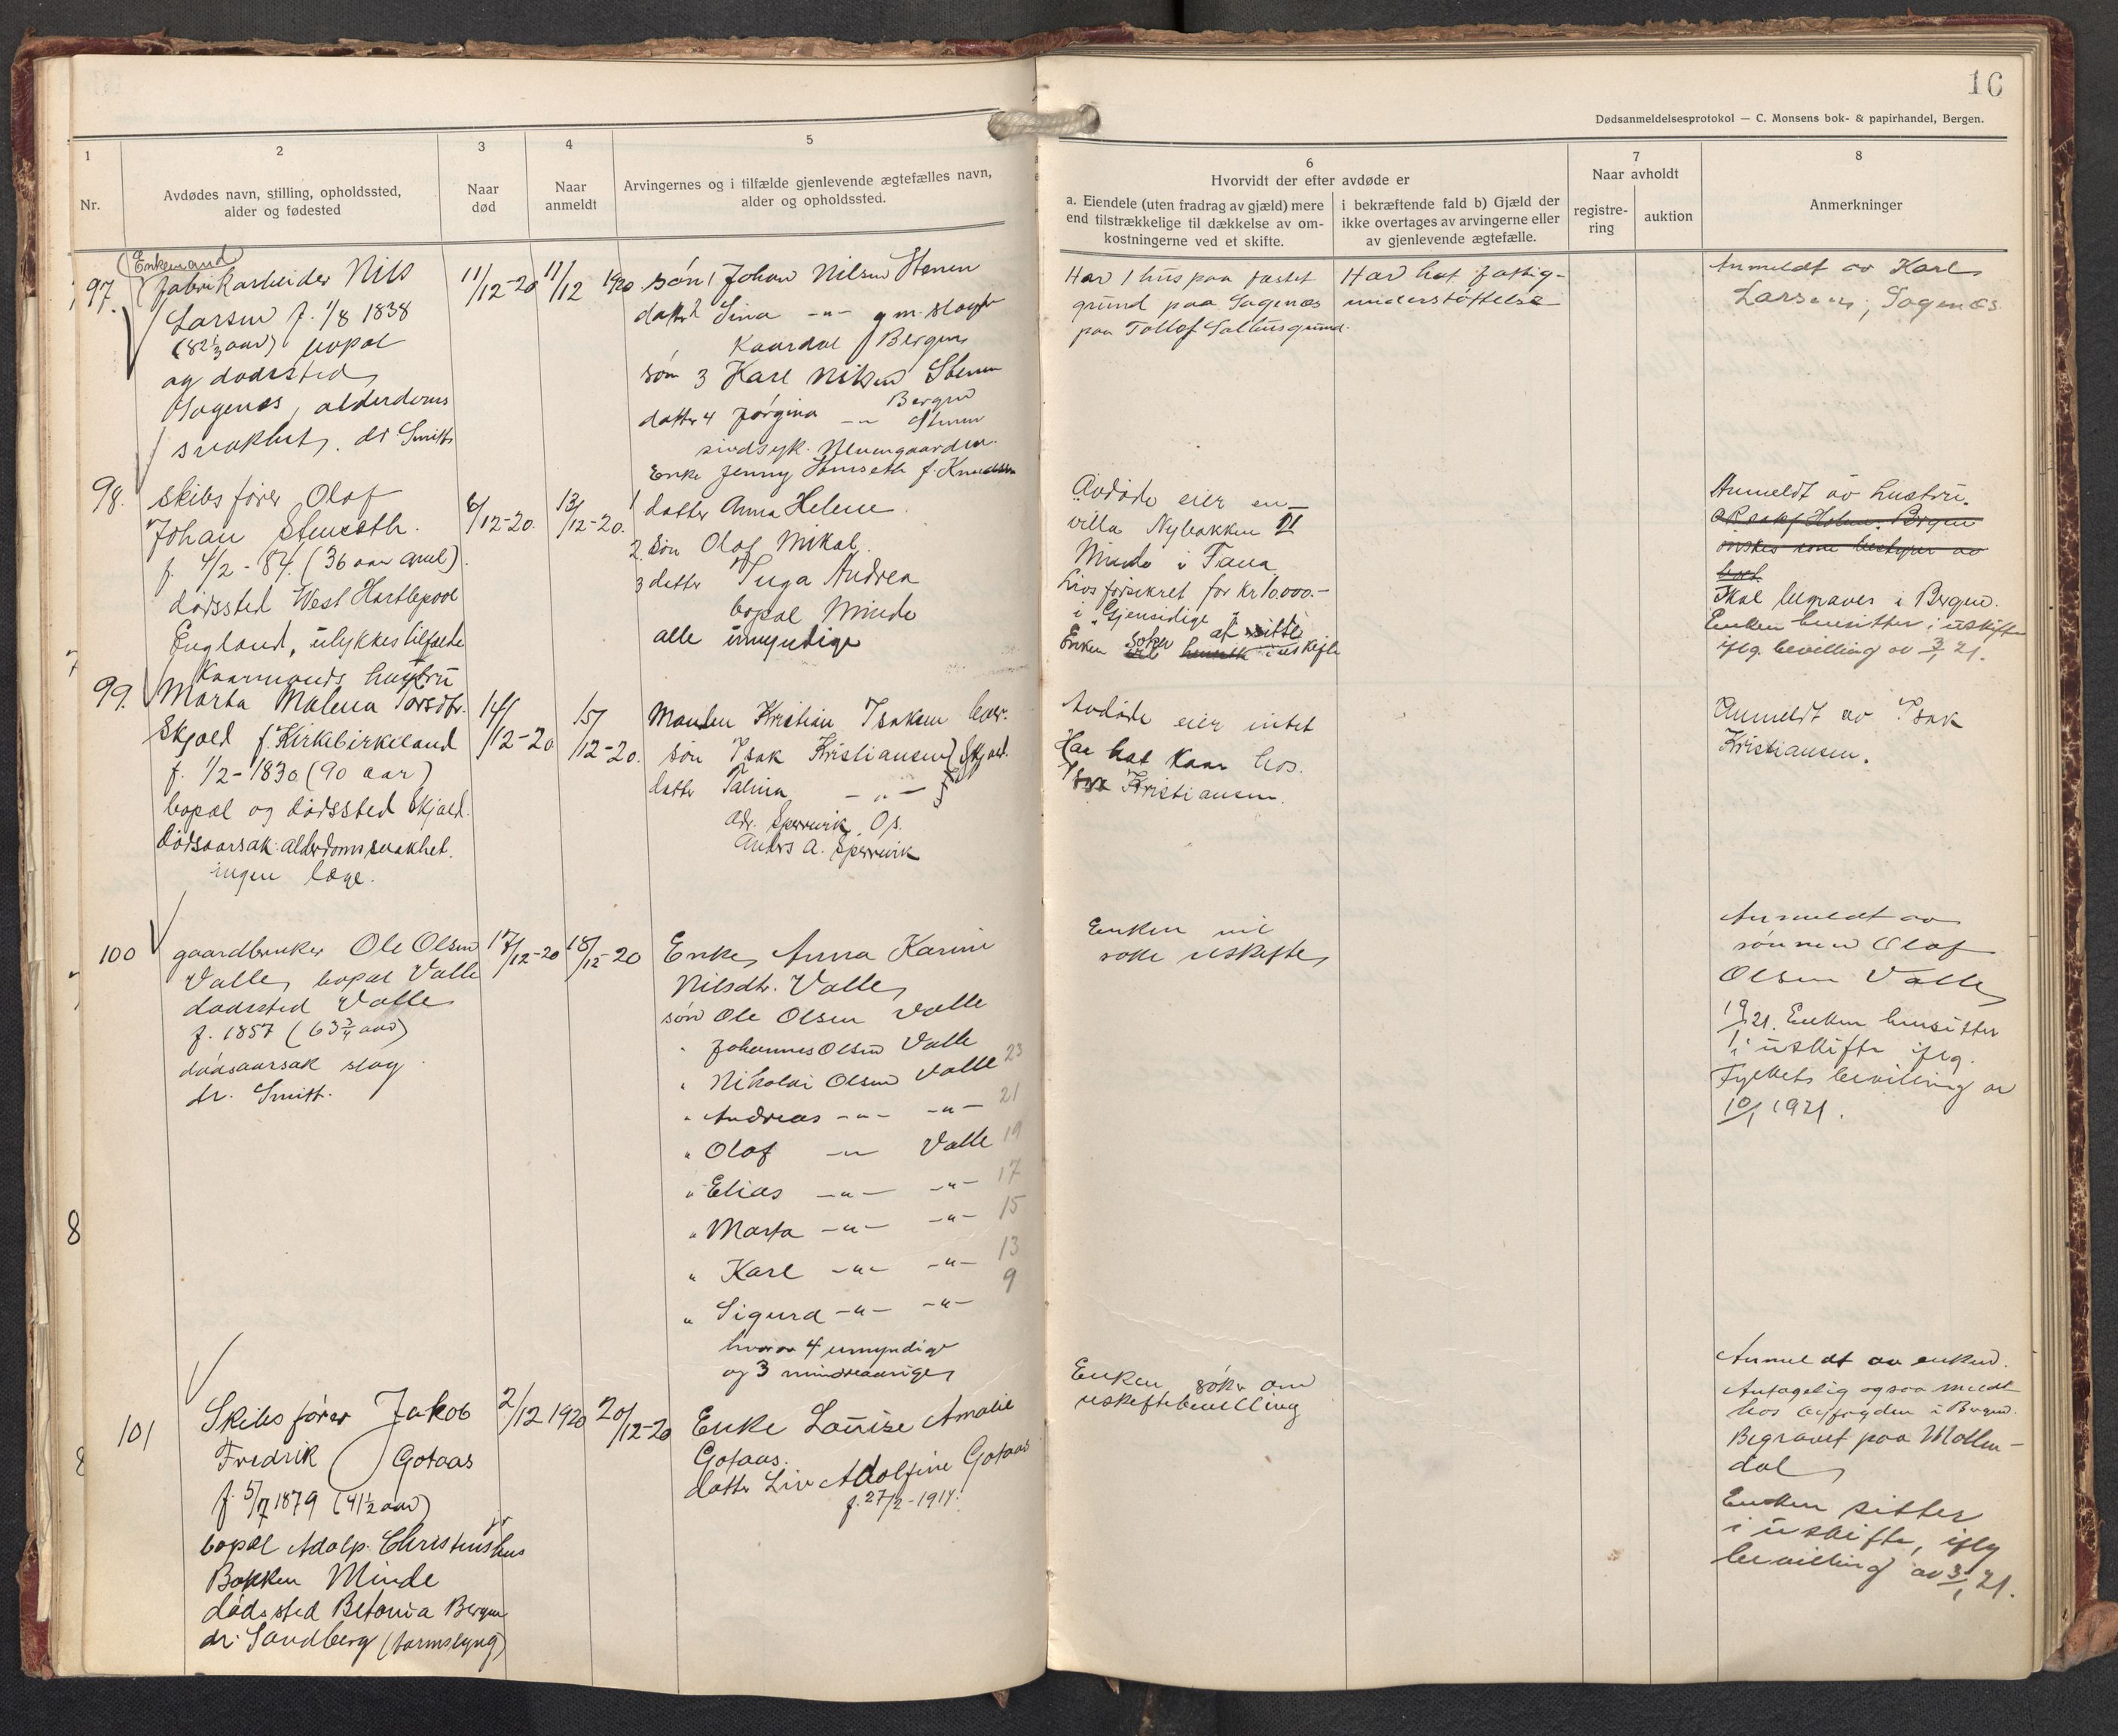 16
Dødsanmeldelsesprotokol — C. Monsens bok- & papirhandel, Bergen.
1
Nr.
2
Avdødes navn, stilling, opholdssted,
alder og fødested
3
Naar
død
4
Naar
anmeldt
5
Arvingernes og i tilfælde gjenlevende ægtefælles navn,
alder og opholdssted.
6
Hvorvidt der efter avdøde er
a. Eiendele (uten fradrag av gjæld) mere
end tilstrækkelige til dækkelse av om-
kostningerne ved et skifte.
i bekræftende fald b) Gjæld der
ikke overtages av arvingerne eller
av gjenlevende ægtefælle.
7
Naar avholdt
registre-
ring
auktion
8
Anmerkninger
97.
Enkemand
fabrikarbeider Nils
Larsen f. 1/8 1838
(82 1/3 aar) bopæl
og dødssted
Sagenæs, alderdoms
svakhet, dr Smitt
11/12-20
11/12 1920
søn 1 Johan Nilsen Stenen
datter 2 Sina -"- g.m.
Bergen
søn 3 Karl Nilsen Stenen
Bergen
datter 4 Jørgina -"- Stenen
sindsyk. Neevengaarden.
Har 1 hus paa fæstet
grund paa Sagenæs
paa Tollef
Har hat fattig-
understøttelse
Anmeldt av Karl
Larsen, Sagenæs.
98.
Skibsfører Olaf
Johan Stenseth.
f. 4/2-84. (36 aar gml.)
dødssted West Hartlepool
England, ulykkestilfælde
6/12-20.
13/12-20.
Enke Jenny f. Knudsen
1 datter Anna Helene
2. søn Olaf Mikal.
3 datter Inga Andrea
bopæl Minde
alle umyndige
Avdøde eier en
villa Nybakken II
Minde i Fana
Livsforsikret for kr 10.000.-
i "Gjensidige"
Enken søker at sitte i uskifte
Anmeldt av hustru.
ønskes som bestyrer av
boet.
Skal begraves i Bergen.
Enken hensitter i uskifte
iflg. bevilling av 3/1 21.
99.
Kaarmands hustru
Marta Malena Torsdtr.
Skjold f. Kirkebirkeland
f. 1/2-1830 (90 aar)
bopæl og dødssted Skjold.
dødsaarsak: alderdomssvakhet.
ingen læge.
14/12-20
15/12-20.
Manden Kristian Isaksen
søn Isak Kristiansen Skjold.
datter Talina -"-
adr. Sperrevik, Os.
Anders A. Sperrevik
Avdøde eier intet
Har hat kaar hos
Isak Kristiansen.
Anmeldt av Isak
Kristiansen.
100
gaardbruker Ole Olsen
Valle, bopæl Valle
dødssted Valle
f. 1857 (63 3/4 aar)
dødsaarsak slag
dr. Smitt.
17/12-20
18/12-20
Enke, Anna Karine
Nilsdtr. Valle,
søn Ole Olsen Valle
" Johannes Olsen Valle
" Nikolai Olsen Valle 23
" Andreas -"- -"- 21
" Olaf -"- Valle 19
" Elias -"- -"- 17
" Marta -"- -"- 15
" Karl -"- -"- 13
" Sigurd -"- -"- 9
hvorav 4 umyndige
og 3 mindreaarige,
Enken vil
søke uskifte,
Anmeldt av
sønnen Olaf
Olsen Valle,
19/1 21. Enken hensitter
i uskifte iflg.
Fylkets bevilling av
10/1 1921.
101
Skibsfører Jakob
Fredrik Gotaas
f. 5/7 1879 (41 1/2 aar)
bopæl Adolp. Christens hus
Bakken Minde
dødssted Betania Bergen
dr. Sandberg (tarmslyng)
2/12 1920
20/12-20
Enke Louise Amalie
Gotaas.
datter Liv Adolfine Gotaas
f. 27/2-1914.
Enken søker om
uskiftebevilling
Anmeldt av enken.
Antagelig ogsaa meldt
hos byfogden i Bergen.
Begravet paa Møllen-
dal,
Enken sitter
i uskifte, iflg
bevilling av 3/1 21.
8
8